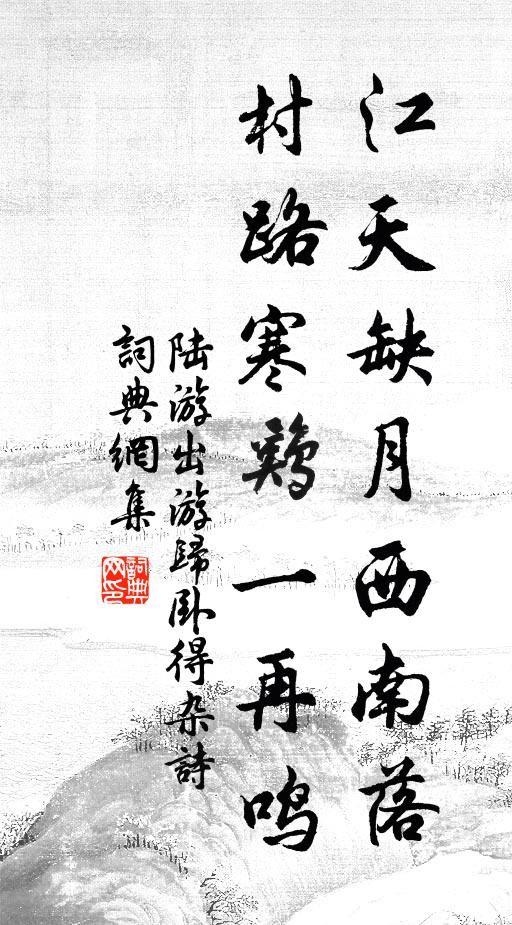 江天缺月西南落
村路寒鷄一再鸣
陆游出游歸卧得杂詩
詞典網集
詞典网印